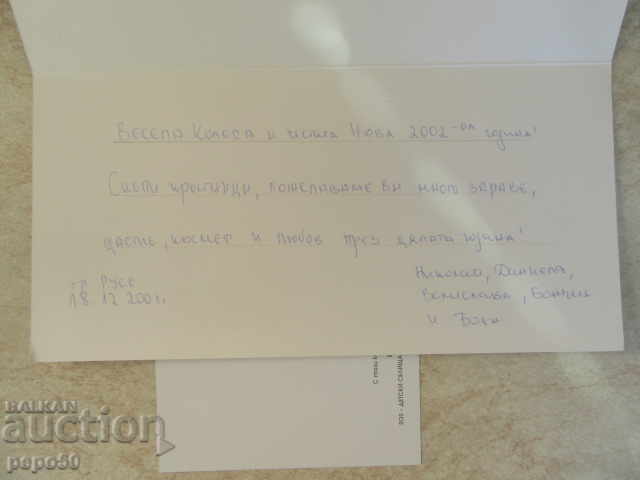 Весела Коледа и честита Нова 2002-ра година!
Скъпи приятели, пожелаваме ви много здраве,
щастие, късмет и любов през цялата година!
гр Русе
18.12.2001г.
Николай, Даниела,
Велислава,
и
С този
SOS - ДЕТСКИ СЕЛИЩА
BALKAN
auction
pepo50